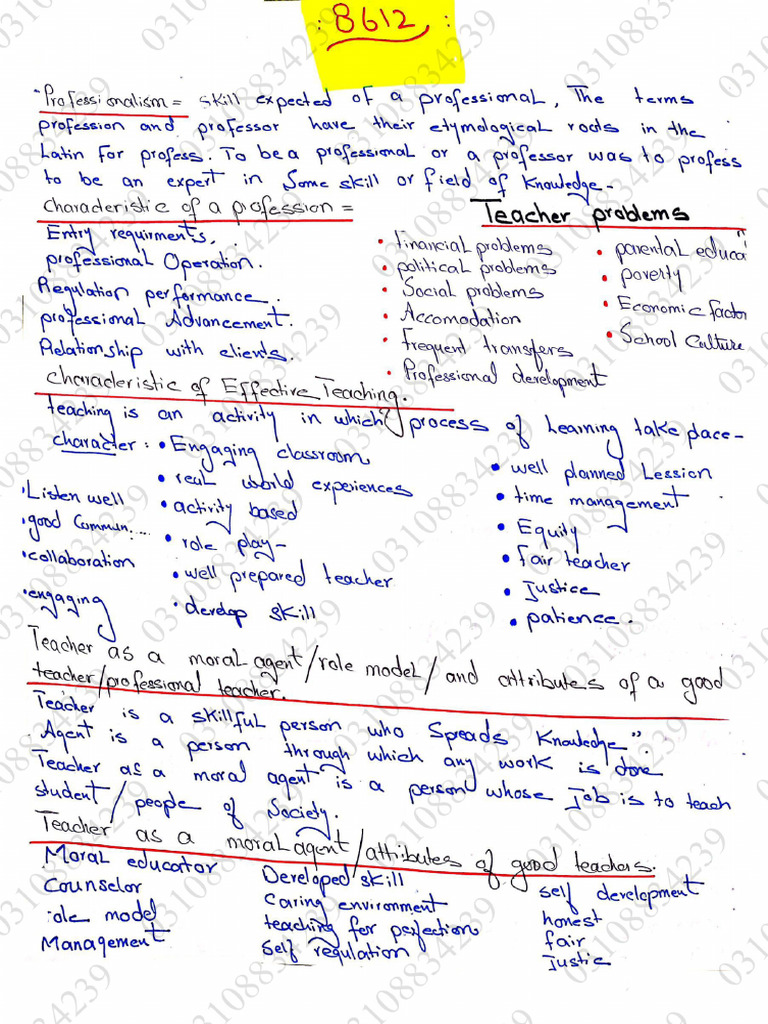 8612
"Professionalism = skill expected of a professional, The terms
profession and professor have their etymological roots in the
Latin For profess. To be a professional or a professor was to profess
to be an expert in Some skill or field of Knowledge-
Characteristic of a profession =
Entry requirments,
professional Operation.
Regulation performance.
professional Advancement.
Relationship with clients.
Teacher problems
• financial problems
• political problems
• Social problems
• Accomodation
• frequent transfers
• Professional development
• parental educa
• poverty
• Economic factor
• School Culture
Characteristic of Effective Teaching.
teaching is an activity in which process of Learning take pace-
character :
• Listen well
• good Commun....
• collaboration
• engaging
• Engaging classroom
• real world experiences
• activity based
• role play-
• well prepared teacher
• develop skill
• well planned Lession
• time management
• Equity
• fair teacher
• Justice
• patience.
Teacher as a moral agent/role model/ and attributes of a good
teacher/professional teacher.
Teacher is a skillful person who Spreads Knowledge".
Agent is a person through which any work is done
Teacher as a moral agent is a person whose Job is to teach
student/people of Society.
Teacher as a moral agent/attributes of good teachers.
Moral educator
Counselor
role model
Management
Developed skill
Caring environment
teaching for perfection
Self regulation
self development
honest
fair
Justic
03108834239